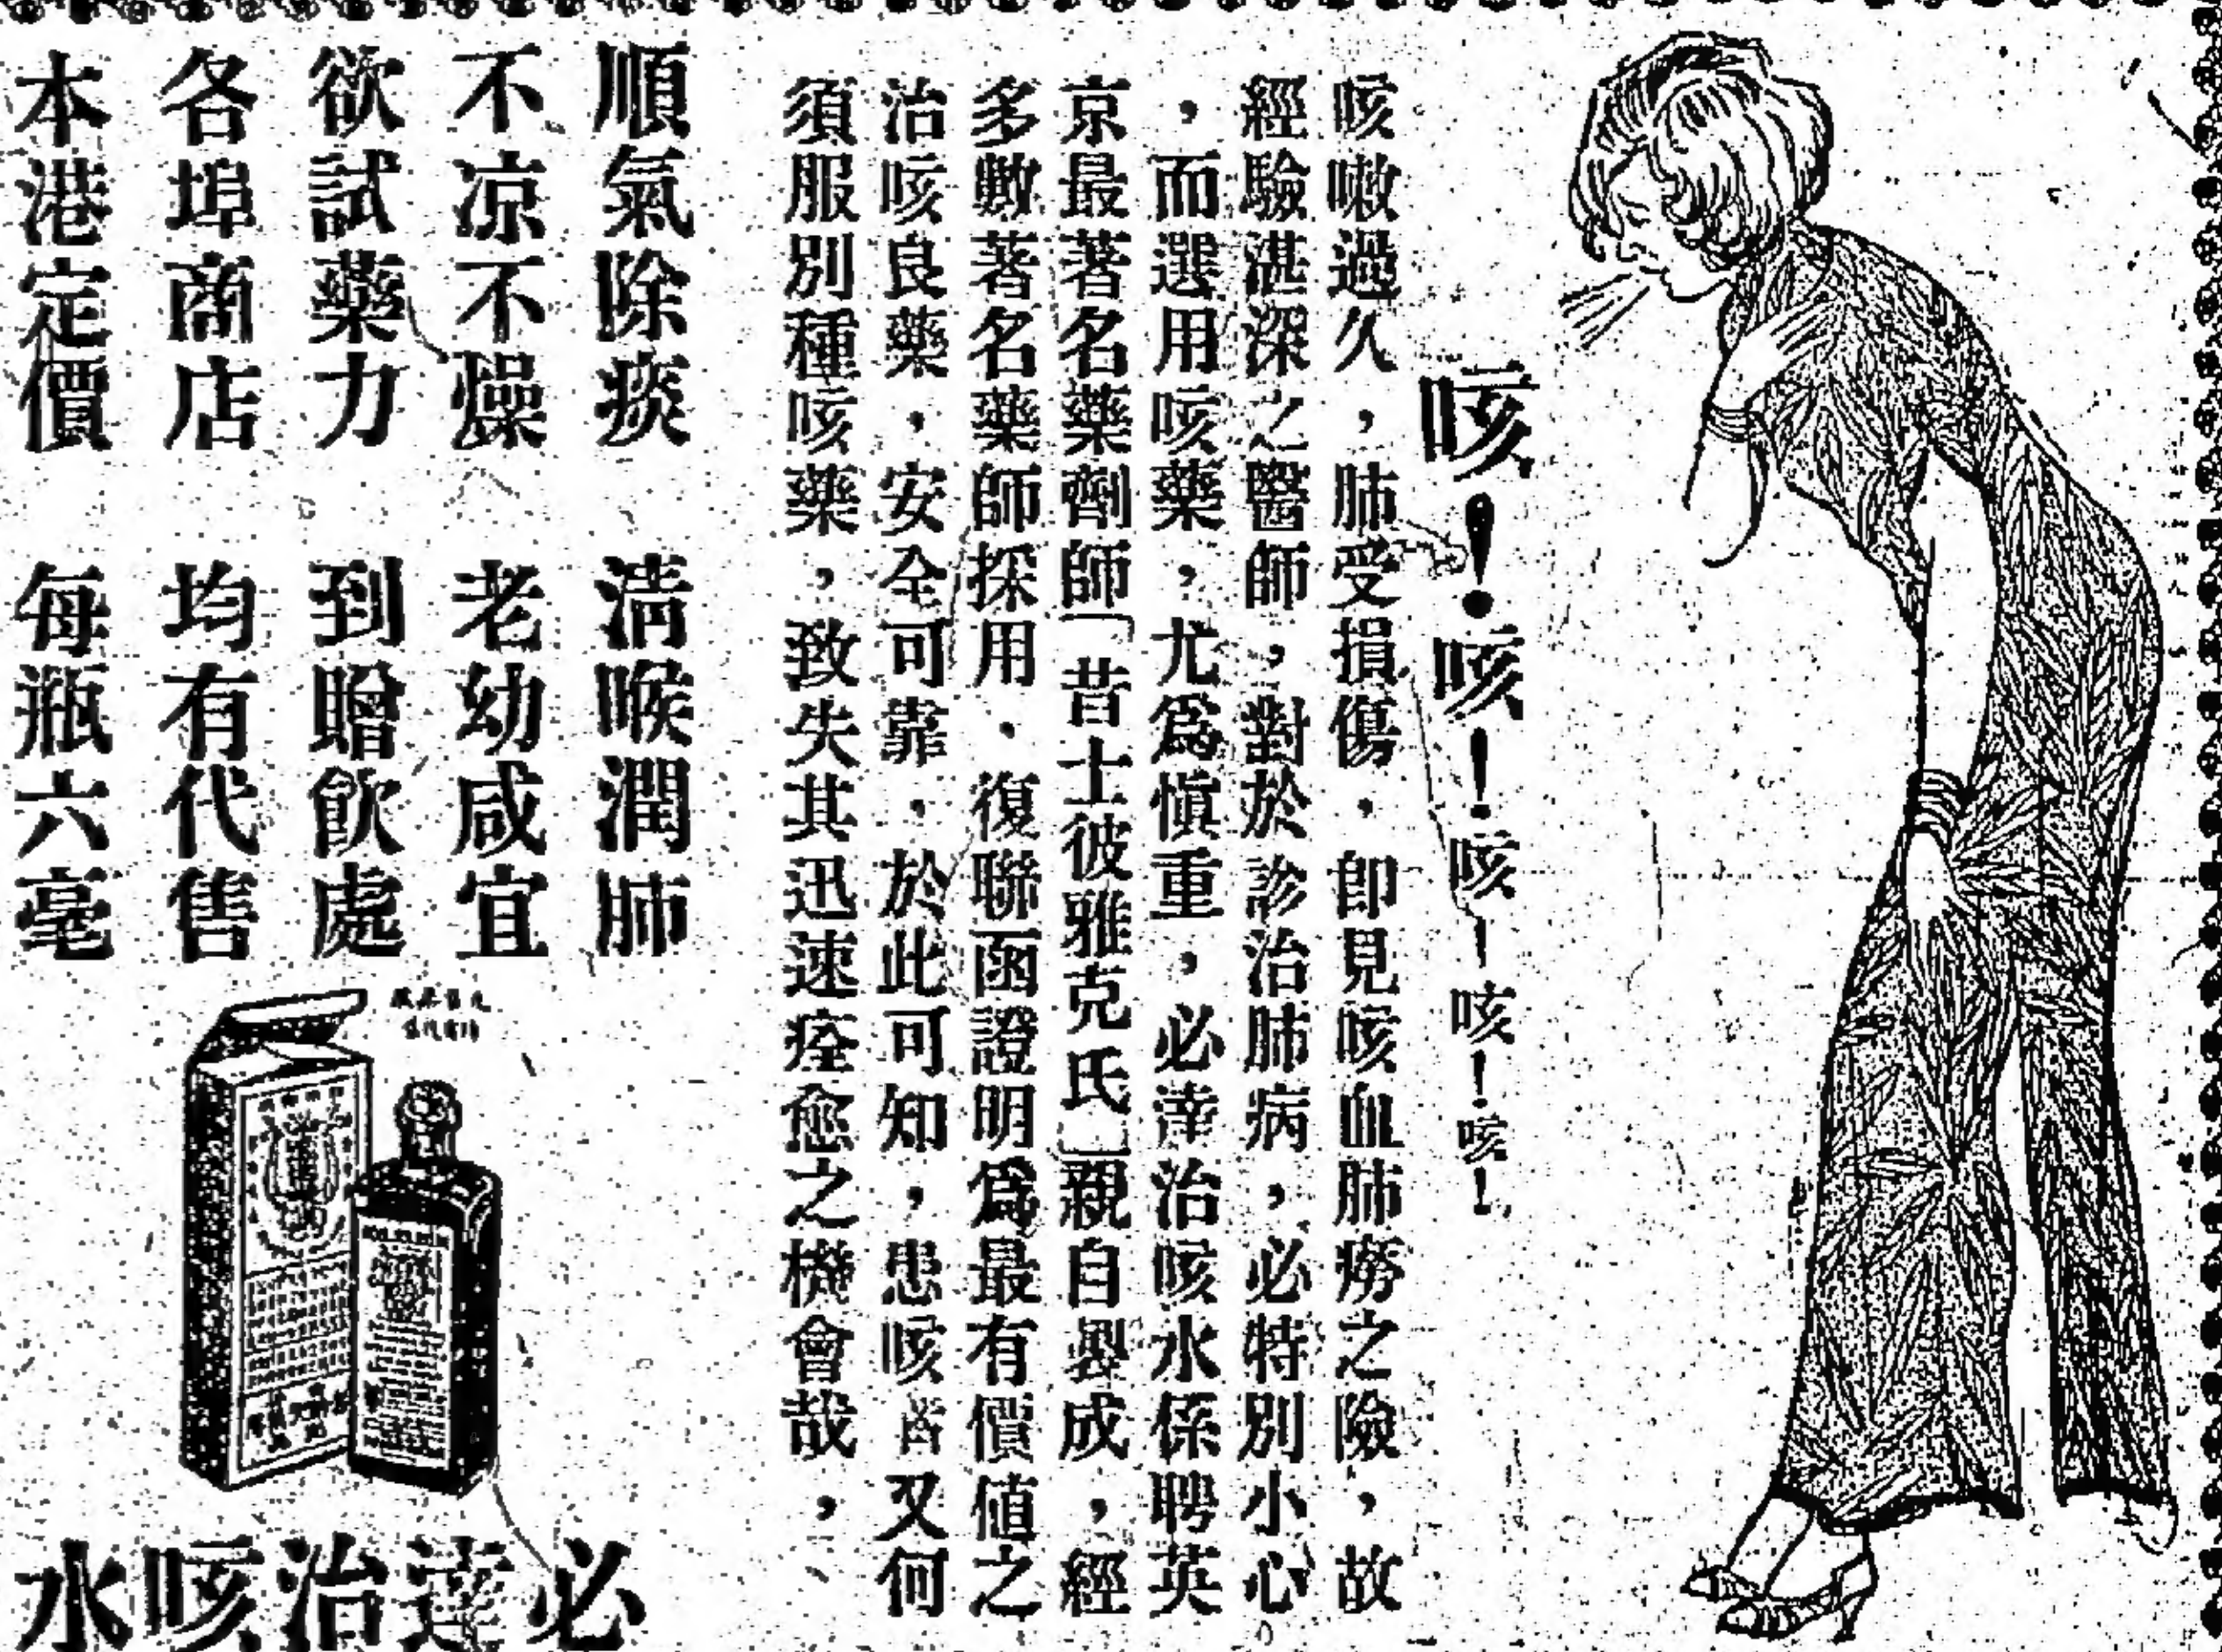 咳！咳！咳！咳！咳！
咳嗽過久，肺受損傷．卽見咳血肺癆之險，故
經驗湛深之醫師，對於診治肺病，必特別小心
，而選用咳藥，尤爲愼重，必達治咳水係聘英
京最著名藥劑師「昔士彼雅克氏」親自製成，經
多數著名藥師採用．復聯函證明爲最有價値之
治咳良藥．安全可靠．於此可知，患咳者又何
須服別種咳藥，致失其迅速痊愈之機會哉，
順氣除痰　淸喉潤肺
不凉不燥　老幼咸宜
欲試藥力　到贈飮處
各埠商店　均有代售
本港定價　每瓶六毫
必達治咳水